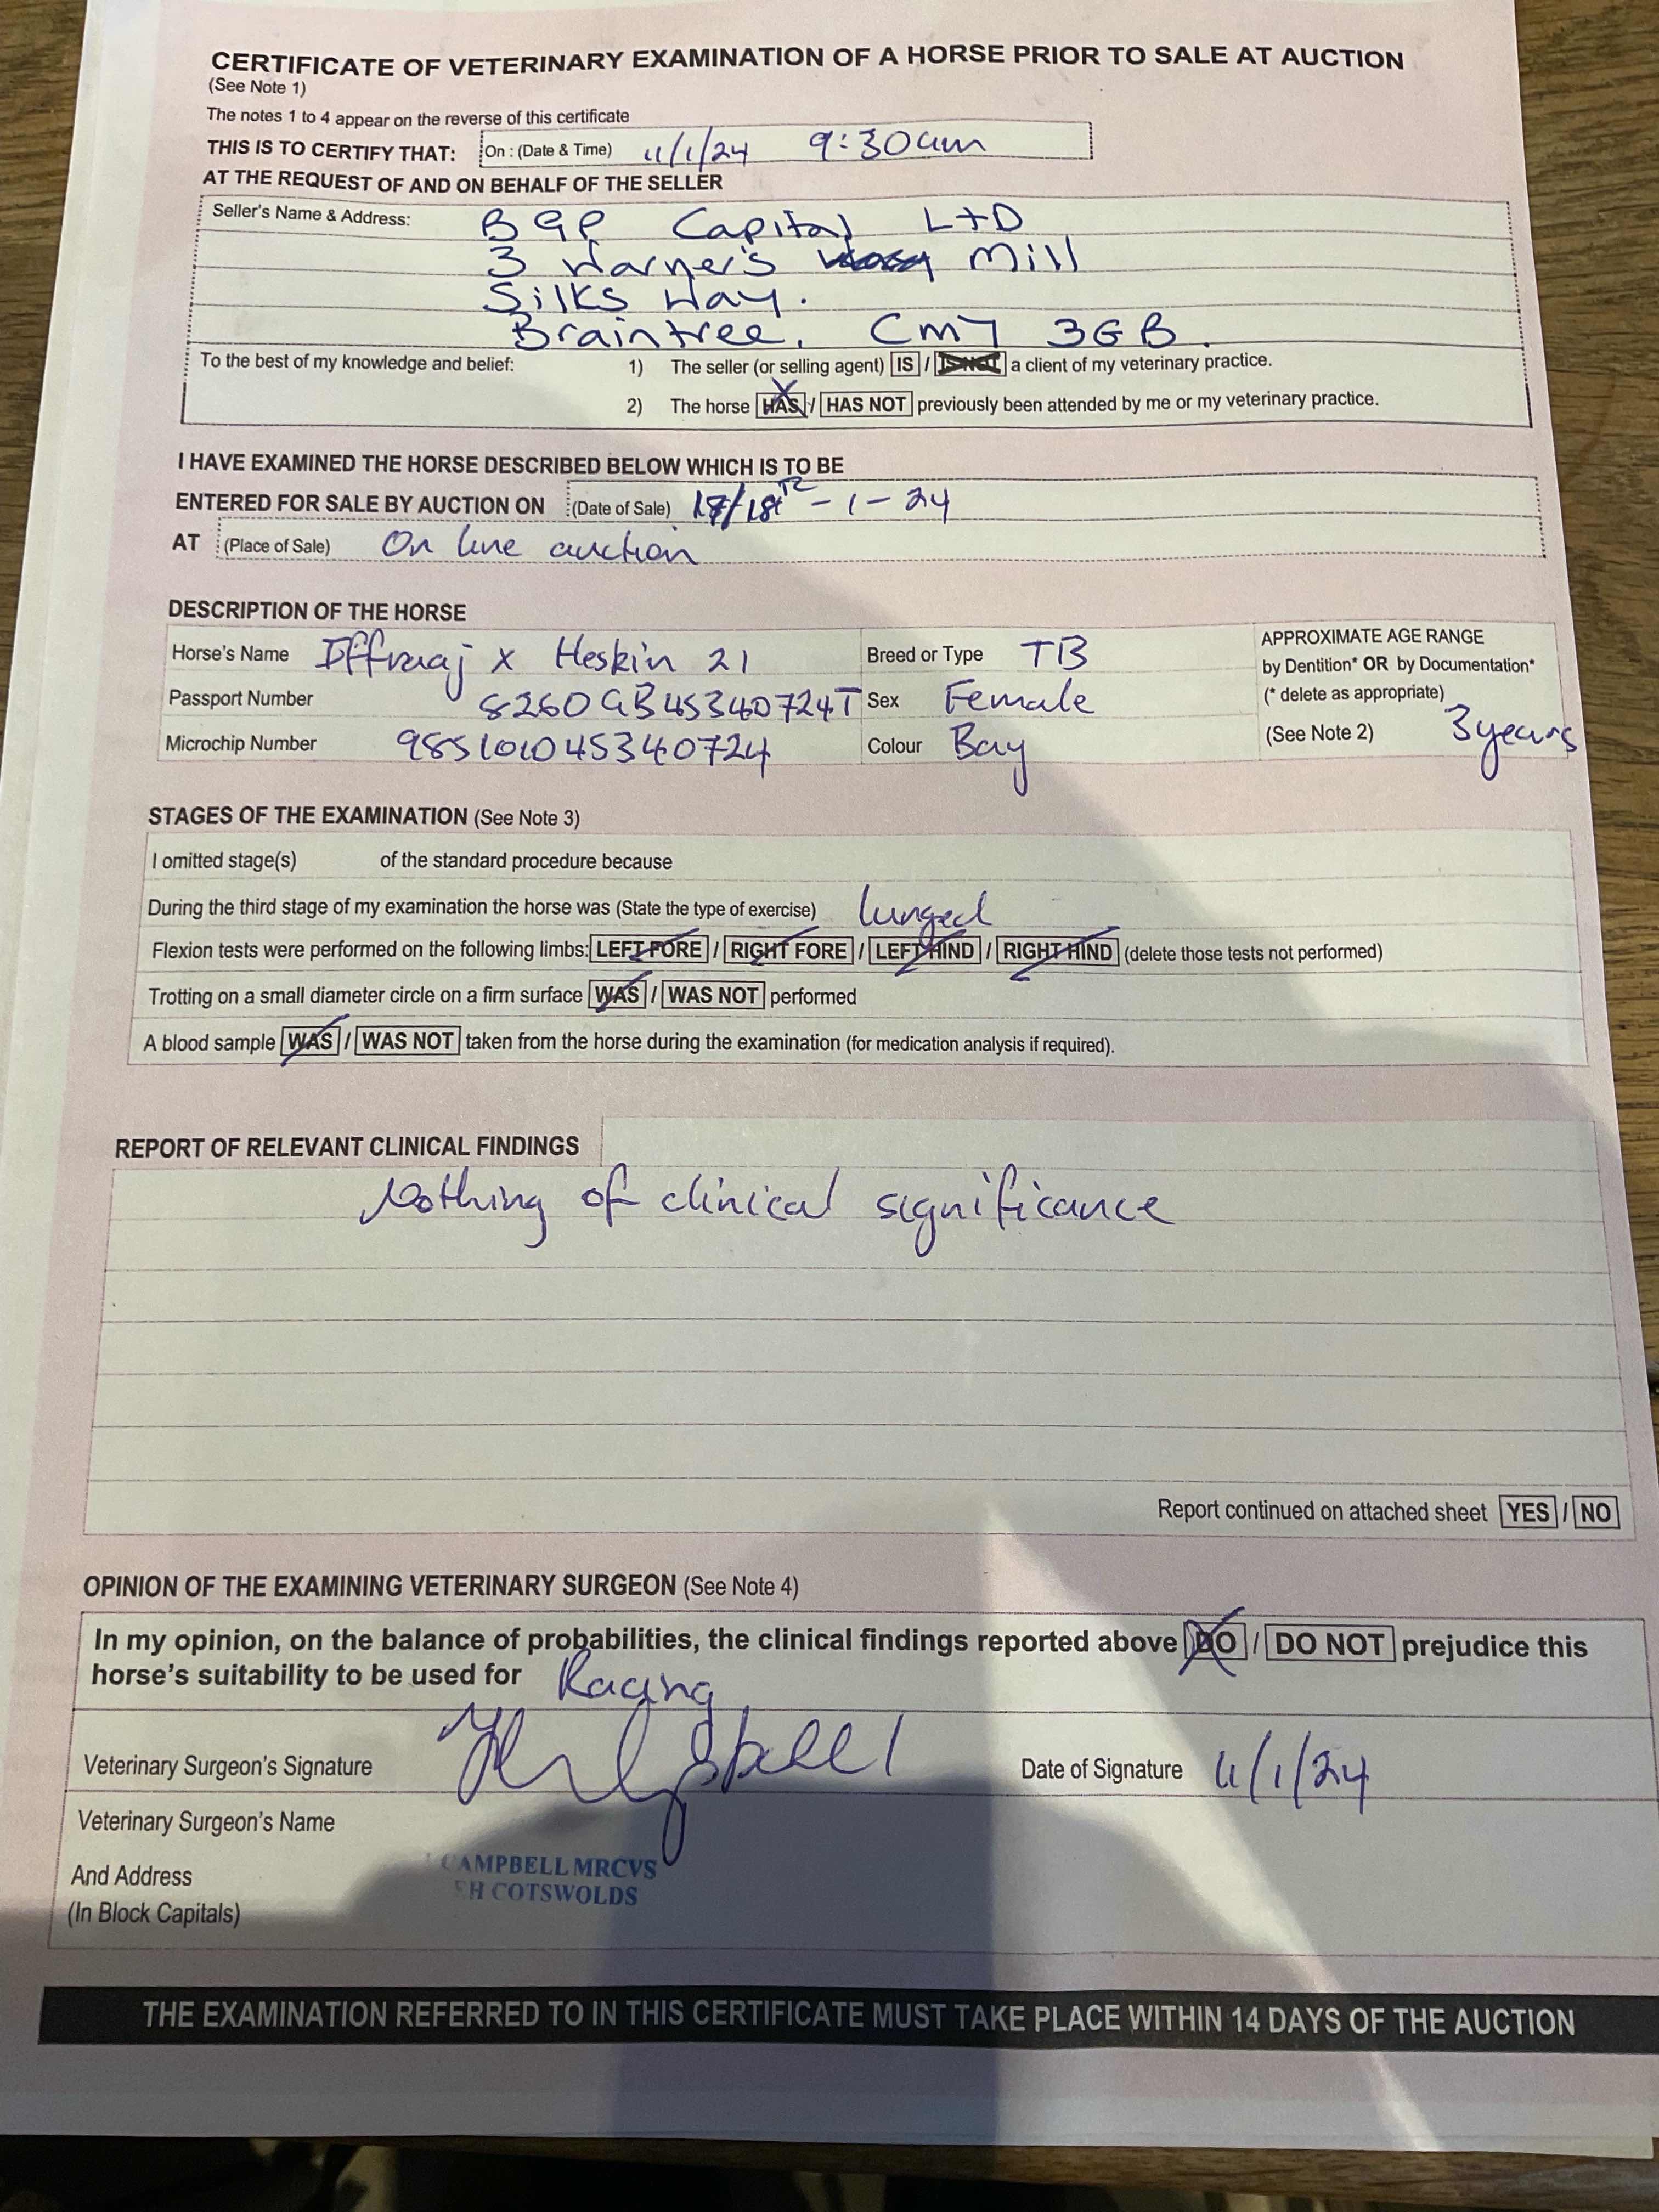 CERTIFICATE OF VETERINARY EXAMINATION OF A HORSE PRIOR TO SALE AT AUCTION
(See Note 1)
The notes 1 to 4 appear on the reverse of this certificate
THIS IS TO CERTIFY THAT: On : (Date & Time) 11/1/24 9:30am
AT THE REQUEST OF AND ON BEHALF OF THE SELLER
Seller's Name & Address: BGP Capital LTD
3 Warner's Mill
Silks Way.
Braintree. CM7 3GB.
To the best of my knowledge and belief: 1) The seller (or selling agent) IS / IS NOT a client of my veterinary practice.
2) The horse HAS / HAS NOT previously been attended by me or my veterinary practice.
I HAVE EXAMINED THE HORSE DESCRIBED BELOW WHICH IS TO BE
ENTERED FOR SALE BY AUCTION ON (Date of Sale) 17/18th - 1 - 24
AT (Place of Sale) On line auction
DESCRIPTION OF THE HORSE
Horse's Name Iffraaj x Heskin 21 Breed or Type TB APPROXIMATE AGE RANGE
by Dentition* OR by Documentation*
Passport Number 8260GB45340724T Sex Female (* delete as appropriate)
Microchip Number 985101045340724 Colour Bay (See Note 2) 3years
STAGES OF THE EXAMINATION (See Note 3)
I omitted stage(s) of the standard procedure because
During the third stage of my examination the horse was (State the type of exercise) lunged
Flexion tests were performed on the following limbs: LEFT FORE / RIGHT FORE / LEFT HIND / RIGHT HIND (delete those tests not performed)
Trotting on a small diameter circle on a firm surface WAS / WAS NOT performed
A blood sample WAS / WAS NOT taken from the horse during the examination (for medication analysis if required).
REPORT OF RELEVANT CLINICAL FINDINGS
Nothing of clinical significance
Report continued on attached sheet YES / NO
OPINION OF THE EXAMINING VETERINARY SURGEON (See Note 4)
In my opinion, on the balance of probabilities, the clinical findings reported above DO / DO NOT prejudice this
horse's suitability to be used for Racing
Veterinary Surgeon's Signature Date of Signature 11/1/24
Veterinary Surgeon's Name
CAMPBELL MRCVS
And Address
EH COTSWOLDS
(In Block Capitals)
THE EXAMINATION REFERRED TO IN THIS CERTIFICATE MUST TAKE PLACE WITHIN 14 DAYS OF THE AUCTION